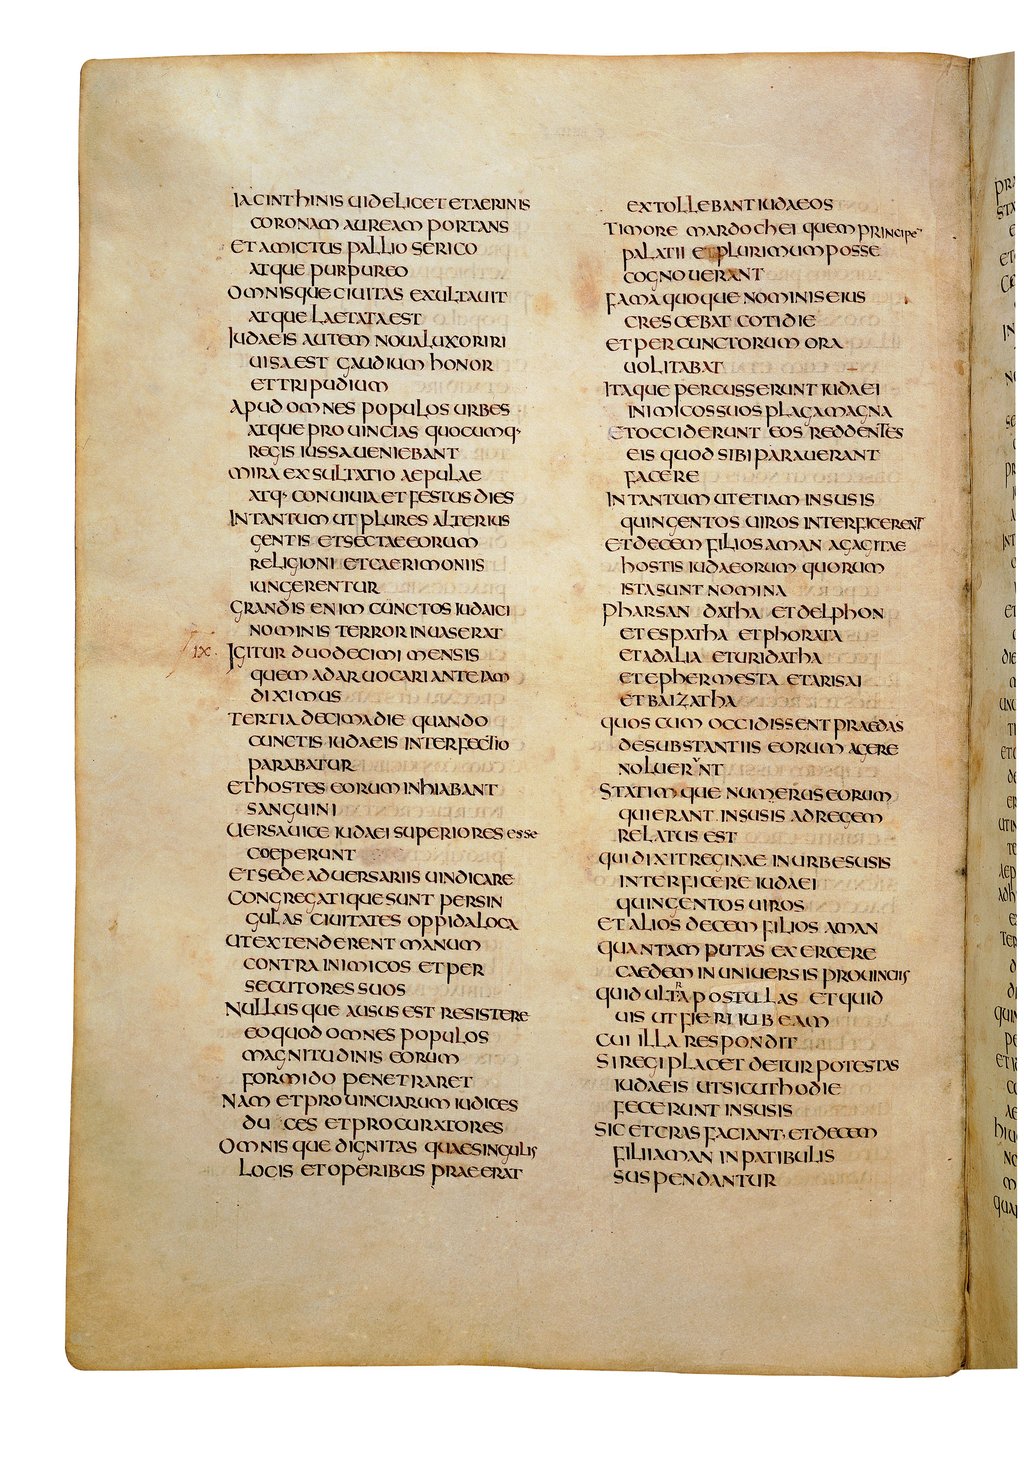 IACINTHINIS UIDELICET ET AERINIS
CORONAM AUREAM PORTANS
ET AMICTUS PALLIO SERICO
ATQUE PURPUREO
OMNISQUE CIUITAS EXULTAUIT
ATQUE LAETATA EST
IUDAEIS AUTEM NOUA LUX ORIRI
UISA EST GAUDIUM HONOR
ET TRIPUDIUM
APUD OMNES POPULOS URBES
ATQUE PROUINCIAS QUOCUMQ·
REGIS IUSSA UENIEBANT
MIRA EXSULTATIO AEPULAE
ATQ· CONUIUIA ET FESTUS DIES
IN TANTUM UT PLURES ALTERIUS
GENTIS ET SECTAE EORUM
RELIGIONI ET CAERIMONIIS
IUNGERENTUR
GRANDIS ENIM CUNCTOS IUDAICI
NOMINIS TERROR INUASERAT
IX· IGITUR DUODECIMI MENSIS
QUEM ADAR UOCARI ANTE IAM
DIXIMUS
TERTIA DECIMA DIE QUANDO
CUNCTIS IUDAEIS INTERFECTIO
PARABATUR
ET HOSTES EORUM INHIABANT
SANGUINI
UERSA UICE IUDAEI SUPERIORES ESSE
COEPERUNT
ET SE DE ADUERSARIIS UINDICARE
CONGREGATIQUE SUNT PER SIN
GULAS CIUITATES OPPIDA LOCA
UT EXTENDERENT MANUM
CONTRA INIMICOS ET PER
SECUTORES SUOS
NULLUSQUE AUSUS EST RESISTERE
EO QUOD OMNES POPULOS
MAGNITUDINIS EORUM
FORMIDO PENETRARET
NAM ET PROUINCIARUM IUDICES
DU CES ET PROCURATORES
OMNISQUE DIGNITAS QUAE SINGULIS
LOCIS ET OPERIBUS PRAEERAT
EXTOLLEBANT IUDAEOS
TIMORE MARDOCHEI QUEM PRINCIPE¯
PALATII ET PLURIMUM POSSE
COGNOUERANT
FAMA QUOQUE NOMINIS EIUS
CRESCEBAT COTIDIE
ET PER CUNCTORUM ORA
UOLITABAT
ITAQUE PERCUSSERUNT IUDAEI
INIMICOS SUOS PLAGA MAGNA
ET OCCIDERUNT EOS REDDENTES
EIS QUOD SIBI PARAUERANT
FACERE
IN TANTUM UT ETIAM IN SUSIS
QUINGENTOS UIROS INTERFICERENT
ET DECEM FILIOS AMAN AGAGITAE
HOSTIS IUDAEORUM QUORUM
ISTA SUNT NOMINA
PHARSAN DATHA ET DELPHON
ET ESPATHA ET PHORATA
ET ADALIA ET URIDATHA
ET EPHERMESTA ET ARISAI
ET BAIZATHA
QUOS CUM OCCIDISSENT PRAEDAS
DE SUBSTANTIIS EORUM AGERE
NOLUERUNT
STATIMQUE NUMERUS EORUM
QUI ERANT IN SUSIS AD REGEM
RELATUS EST
QUI DIXIT REGINAE IN URBE SUSIS
INTERFICERE IUDAEI
QUINGENTOS UIROS
ET ALIOS DECEM FILIOS AMAN
QUANTAM PUTAS EXERCERE
CAEDEM IN UNIUERSIS PROUINCIIS
QUID ULTRA POSTULAS ET QUID
UIS UT FIERI IUBEAM
CUI ILLA RESPONDIT
SI REGI PLACET DETUR POTESTAS
IUDAEIS UT SICUT HODIE
FECERUNT IN SUSIS
SIC ET CRAS FACIANT· ET DECEM
FILII AMAN IN PATIBULIS
SUSPENDANTUR